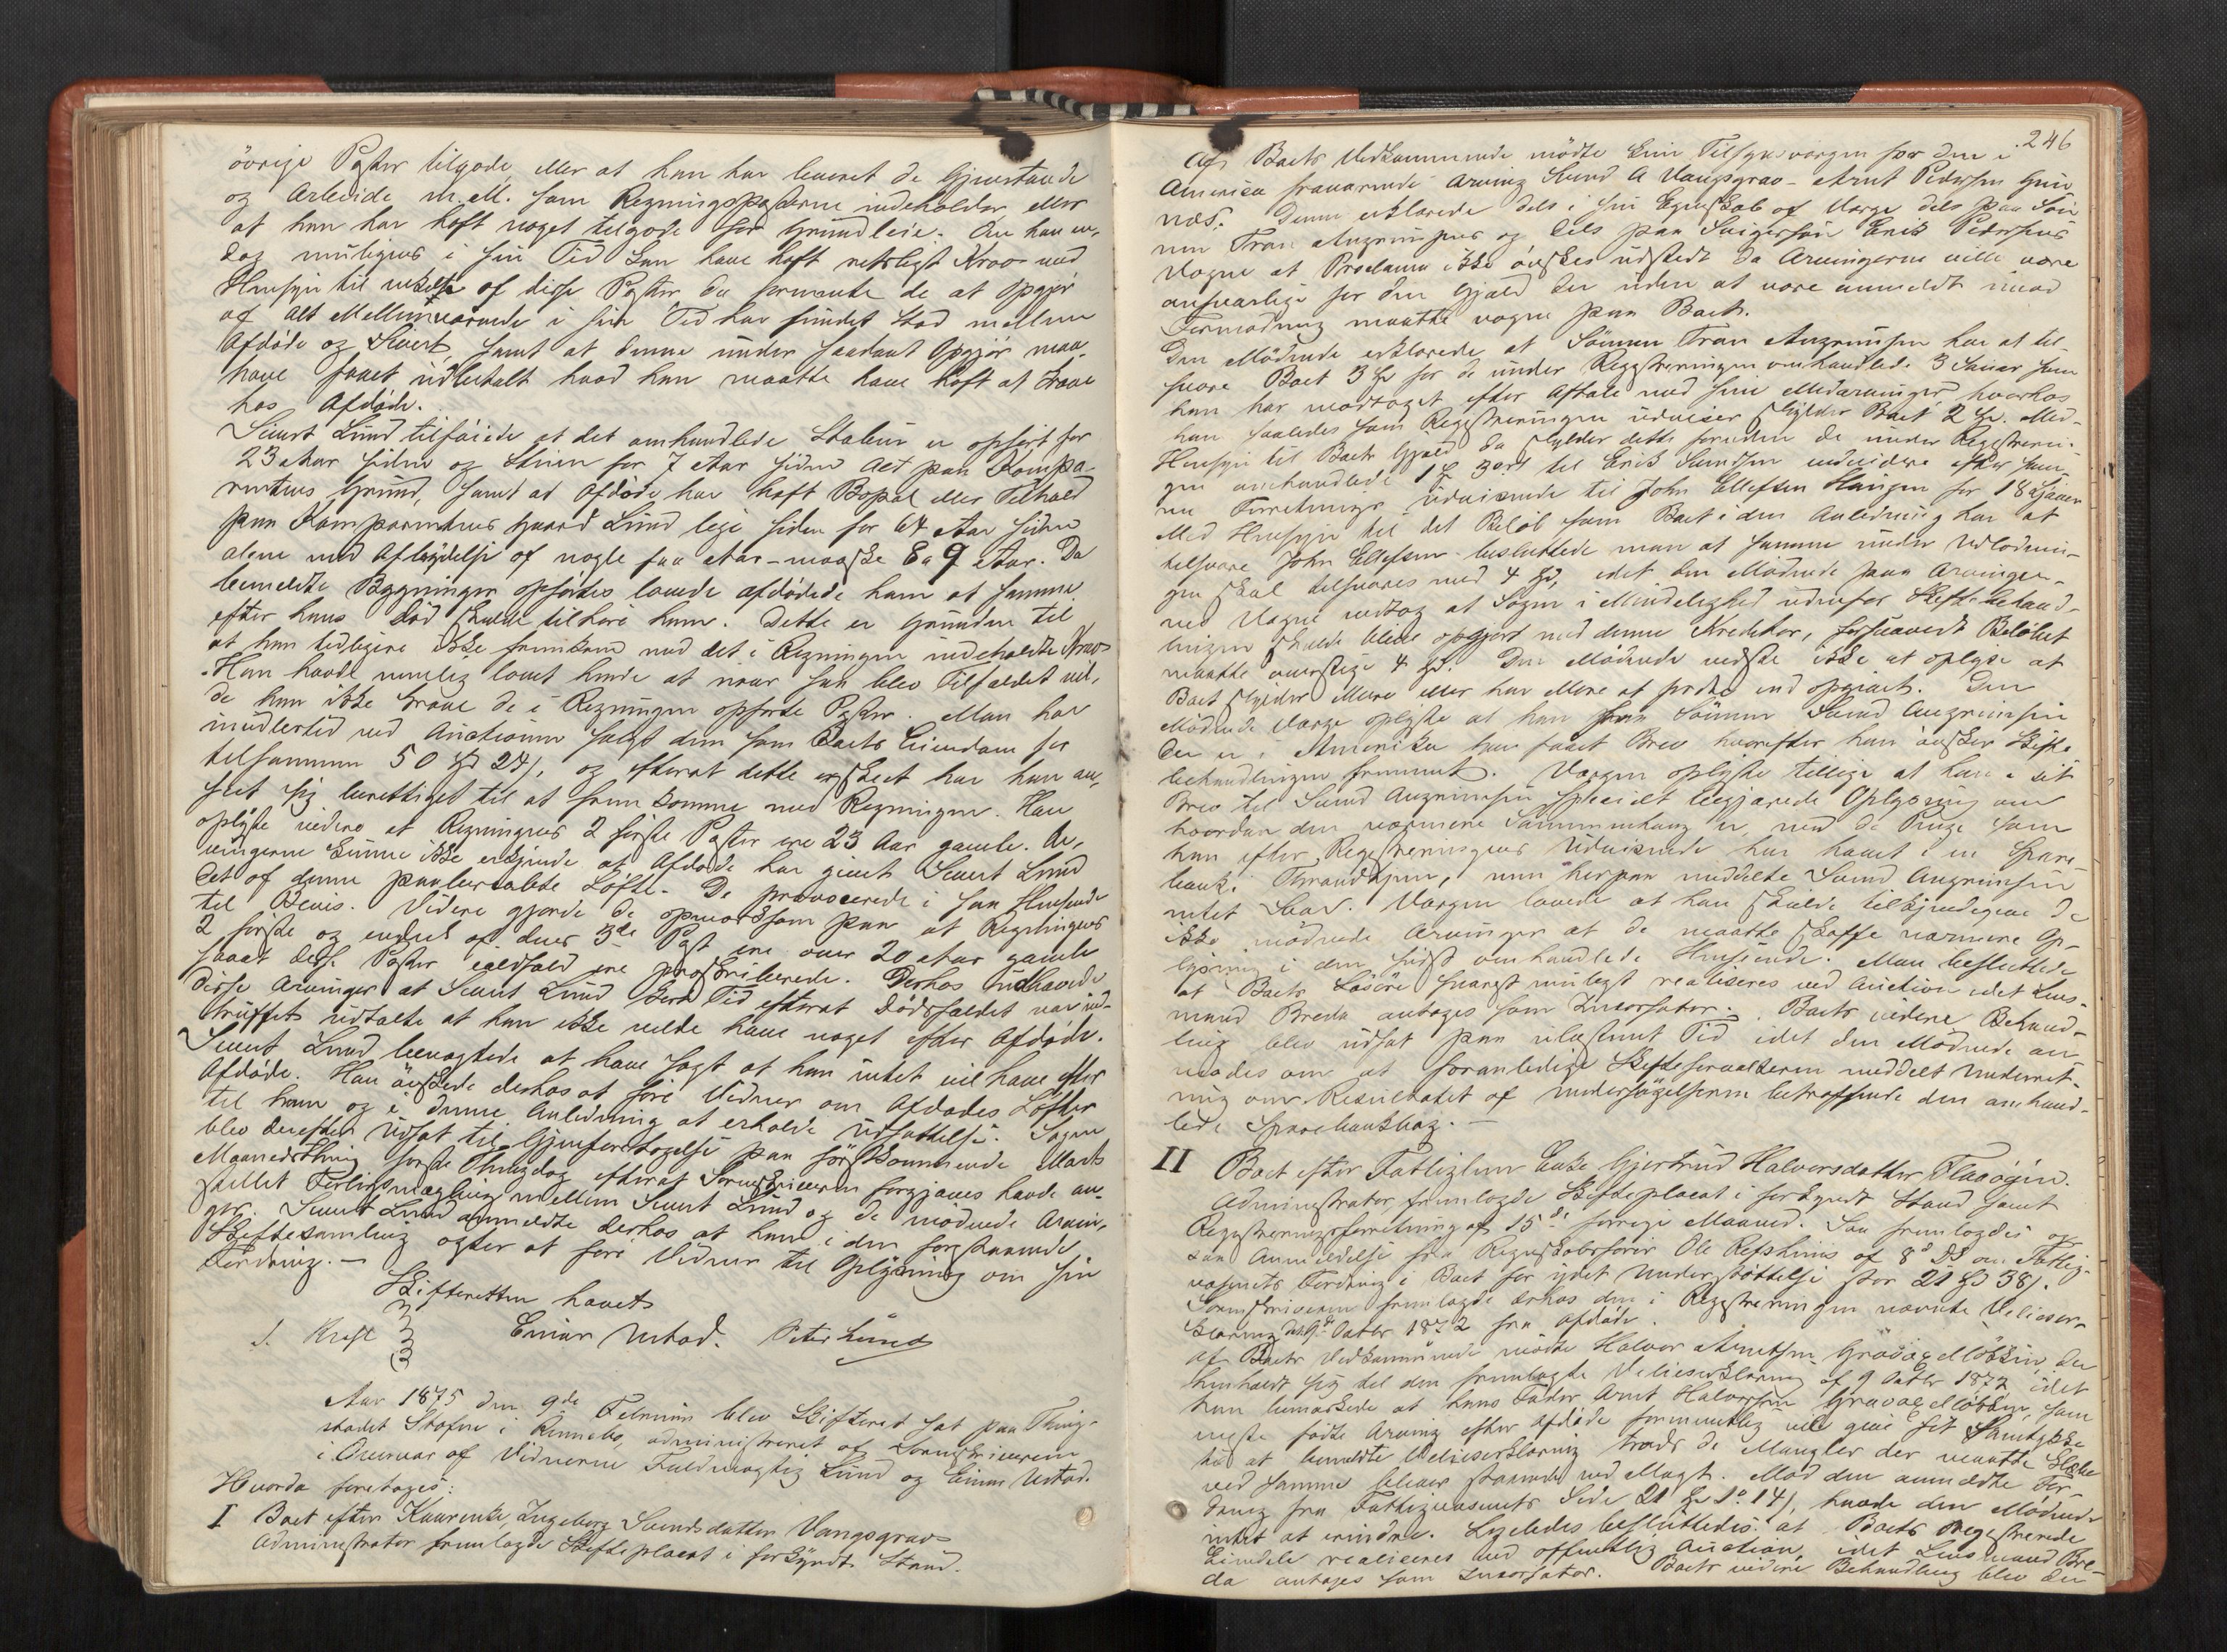 övrige Poster tilgode, eller at han har leveret de Gjenstande
og Arbeide m. M. som Regningsposterne indeholder eller
at han har haft noget tilgode for Grundleie. Om han en-
dog muligens i sin Tid kan have haft retsligt Krav med
Hensyn til af disse Poster da formente de at Opgjör
af alt Mellemværende i sin Tid har fundet Sted mellem
Afdöde og Sivert, samt at denne under saadant Opgjör maa
have faaet udbetalt hvad han maatte have haft at krave
hos Afdöde.
Sivert Lund tilföiede at det omhandlede Stabur er opfört for
23 Aar siden og Stuen for 7 Aar siden Alt paa Kompa-
rentens Grund, samt at Afdöde har haft Bopæl eller Tilhold
paa Komparentens Gaard Lund lige siden for 64 Aar siden
alene med Afbrydelse af nogle faa Aar - maaske 8 a 9 Aar. Da
bemeldte Bygninger opförtes lovede afdöde ham at samme
efter hans Död skulde tilhöre ham. Dette er Grunden til
at han tidligere ikke fremkom med det i Regningen indeholdte Krav
Han havde nemlig lovet hende at naar saa blev Tilfældet vil-
de han ikke krave de i Regningen opförte Poster. Man har
imidlertid ved Auctionen solgt dem som Boets Eiendom for
tilsammen 50 Spd 24 s, og efterat dette er skeet har han an-
seet sig berettiget til at fremkomme med Regningen. Han
oplyste videre at Regningens 2 förste Poster ere 23 Aar gamle. Ar-
vingerne kunne ikke erkjende at Afdöde har givet Sivert Lund
det af denne paaberaabte Löfte. De provocerede i saa Henseende
til Bevis. Videre gjorde de opmærksom paa at Regningens
2 förste og endeel af dens 3de Post ere over 20 Aar gamle
saaat disse Poster ialdfald ere præskriberede. Derhos
disse Arvinger at Sivert Lund kort Tid efterat Dödsfaldet var ind-
truffet udtalte at han ikke vilde have noget efter Afdöde.
Sivert Lund benegtede at have sagt at han intet vil have efter
Afdöde. Han önskede derhos at före Vidner om Afdödes Löfter
til ham og i denne Anledning at erholde Udsættelse. Sagen
blev derefter udsat til Gjenforetagelse paa förstkommende Marts
Maanedsthing förste Thingdag efterat Sorenskriveren forgjæves havde an-
stillet Forligsmægling mellem Sivert Lund og de mödende Arvin-
ger. Sivert Lund anmeldte derhos at han i den forestaaende
Skiftesamling agter at före Vidner til Oplysning om sin
Fordring. -
Skifteretten hævet
J. Kreft Einar Ustad. Peter Lund
Aar 1875 den 9de Februar blev Skifteret sat paa Thing-
stedet Stofne i Rennebo, administreret af Sorenskriveren
i Overvær af Vidnerne Fuldmægtig Lund og Einar Ustad.
Hvorda foretoges:
I Boet efter Kaarenke, Ingeborg Svendsdatter Vangsgrav
Administrator fremlagde Skifteplacat i forkyndt Stand.
246
Af Boets Vedkommende mödte kun Tilsynsvergen for den i
America fraværende Arving Svend A Vangsgrav - Arnt Pedersen Grin-
næs. Denne erklærede dels i sin Egenskab af Verge dels paa Sön-
nen Tran Angrimsens og dels paa Svigersön Erik Pedersens
Vegne at Proclama ikke önskes udstedt da Arvingerne ville være
ansvarlige for den Gjæld der uden at være anmeldt imod
Formodning maatte vogne paa Boet.
Den Mödende erklærede at Sönnen Tran Angrimsen har at til-
svare Boet 3 Spd for de under Registreringen omhandlede 3 Sauer som
han har modtaget efter Aftale med sine Medarvinger hvorhos
han saaledes som Registreringen udviser skylder Boet 2 Spd. Med-
Hensyn til Boets Gjæld da skylder dette foruden de under Registrerin-
gen omhandlede 1 Spd 3 ort til Erik Svendsen endvidere efter sam-
me Forretnings Udvisende til John Ellefsen Haugen for 18
Med Hensyn til det Belöb som Boet i den Anledning har at
tilsvare John Ellefsen besluttede man at samme under Udlodnin-
gen skal tilsvares med 4 Spd, idet den Mödende paa Arvinger-
nes Vegne vedtog at Sagen i Mindelighed udenfor Skiftebehand-
lingen skulde blive opgjort med denne Kreditor, forsaavidt Belöbet
maatte overstige 4 Spd. Den Mödende vidste ikke at oplyse at
Boet skylder Mere eller har Mere at fordre end opgivet. Den
Mödende Verge oplyste at han fra Sönnen Svend Angrimsen
der er i Amerika har faaet Brev hvorefter han önsker Skifte
behandlingen fremmet. Vergen oplyste tillige at han i sit
Brev til Svend Angrimsen specielt begjærede Oplysning om
hvordan den nærmere Sammenhæng er med de Penge som
han efter Registreringens Udvisende har havt i en Spare
bank i Throndhjem, men herpaa meddelte Svend Angrimsen
intet Svar. Vergen lovede at han skulde tilkjendegive de
ikke mödende Arvinger at de maatte skaffe nærmere Op-
lysning i den sidst omhandlede Henseende. Man besluttede
at Boets Lösöre snarest muligt realiseres ved Auction idet Lens-
mand Breda antages som Incassator. Boets videre Behand-
ling blev udsat paa ubestemt Tid idet den Mödende an-
modes om at foranledige Skifteforvalteren meddelt Underret-
ning om Resultatet af Undersögelserne betræffende den omhand-
lede Sparebankbog. -
II Boet efter Fattiglem Enke Gjertrud Halvorsdatter Flaaögien.
Administrator fremlagde Skifteplacat i forkyndt Stand samt
Registreringsforretning af 15de forrige Maaned. Saa fremlagdes og-
saa Anmeldelse fra Regnskabsförer Ole Refshuus af 8de Ds om Fattig-
væsenets Fordring i Boet for ydet Understöttelse stor 21 Spd 38 s.
Sorenskriveren fremlagde derhos den i Registreringen nævnte Velieser-
klæring dat. 9de Octbr 1872 fra Afdöde.
Af Boets Vedkommende mödte Halvor Arntsen der
henholdt sig til den fremlagte Velieserklæring af 9 Octbr 1872 idet
han bemærkede at hans Fader Arnt Halvorsen som
neste födte Arving efter Afdöde formentlig vil give sit Samtykke
til at bemeldte Velieserklæring trods de Mangler der maatte klæbe
ved samme bliver staaende ved Magt. Mod den anmeldte For-
dring fra Fattigvæsenets Side 21 Spd 1 o. 14 s, havde den Mödende
intet at erindre. Ligeledes besluttedes at Boets registrerede
Eiendele realiseres ved offentlig Auction, idet Lensmand Bre-
da antages som Incassator. Boets videre Behandling blev der-